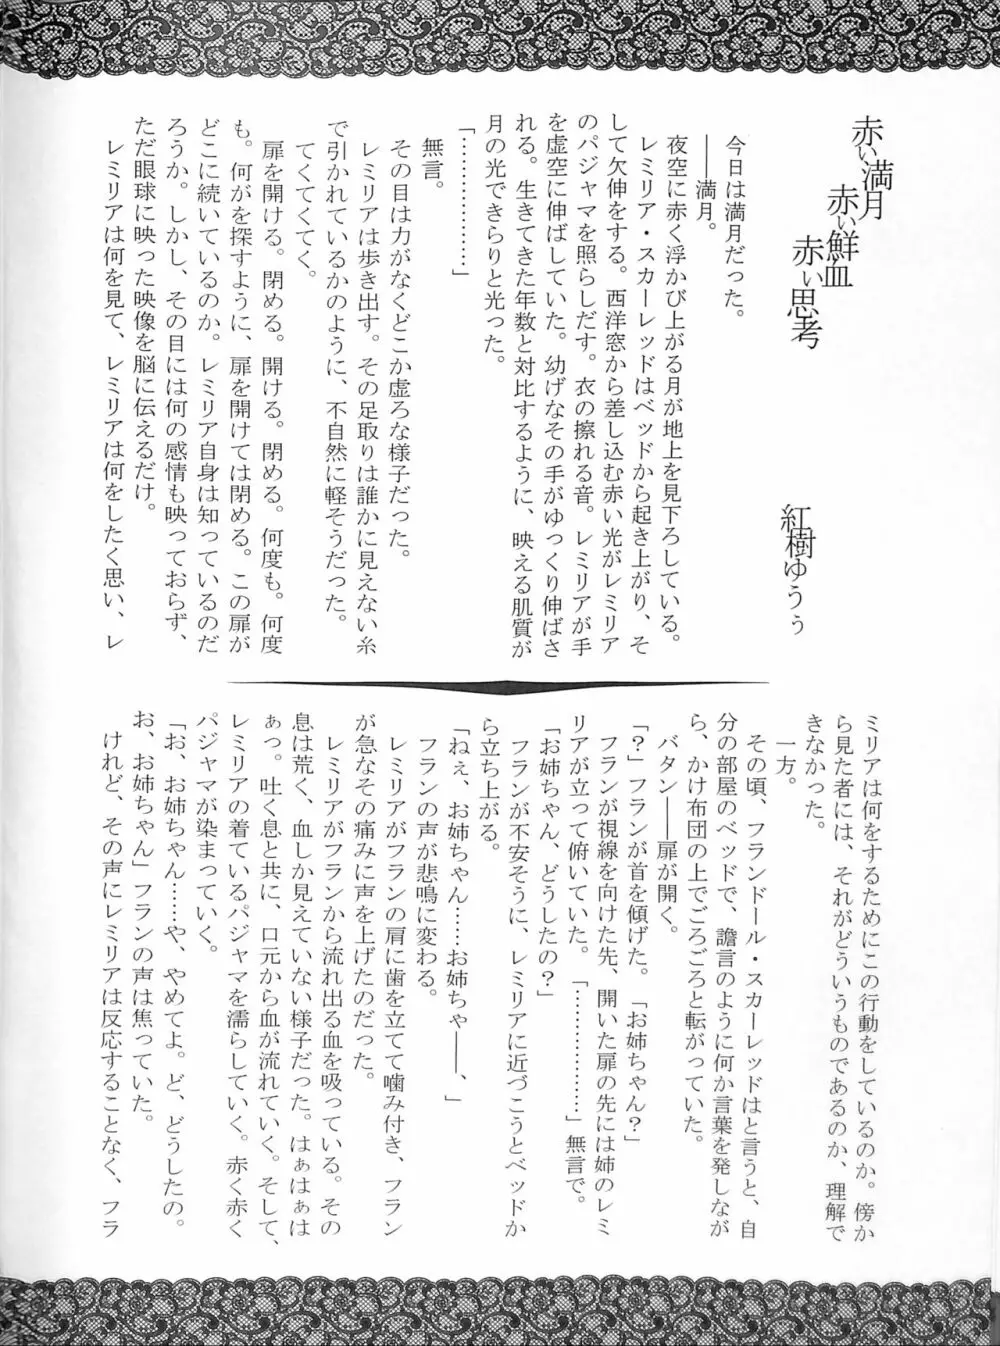 赤い満月
赤い鮮血
赤い思考
紅樹ゆうぅ
今日は満月だった。
――満月。
夜空に赤く浮かび上がる月が地上を見下ろしている。
レミリア・スカーレッドはベッドから起き上がり、そ
して欠伸をする。西洋窓から差し込む赤い光がレミリア
のパジャマを照らしだす。衣の擦れる音。レミリアが手
を虚空に伸ばしていた。幼げなその手がゆっくり伸ばさ
れる。生きてきた年数と対比するように、映える肌質が
月の光できらりと光った。
「………………」
無言。
その目は力がなくどこか虚ろな様子だった。
レミリアは歩き出す。その足取りは誰かに見えない糸
で引かれているかのように、不自然に軽そうだった。
てくてくてく。
扉を開ける。閉める。開ける。閉める。何度も。何度
も。何がを探すように、扉を開けては閉める。この扉が
どこに続いているのか。レミリア自身は知っているのだ
ろうか。しかし、その目には何の感情も映っておらず、
ただ眼球に映った映像を脳に伝えるだけ。
レミリアは何を見て、レミリアは何をしたく思い、レ
ミリアは何をするためにこの行動をしているのか。傍か
ら見た者には、それがどういうものであるのか、理解で
きなかった。
一方。
その頃、フランドール・スカーレッドはと言うと、自
分の部屋のベッドで、譫言のように何か言葉を発しなが
ら、かけ布団の上でごろごろと転がっていた。
バタン――扉が開く。
「？」フランが首を傾げた。「お姉ちゃん？」
フランが視線を向けた先、開いた扉の先には姉のレミ
リアが立って俯いていた。「………………」無言で。
「お姉ちゃん、どうしたの？」
フランが不安そうに、レミリアに近づこうとベッドか
ら立ち上がる。
「ねぇ、お姉ちゃん……お姉ちゃ――、」
フランの声が悲鳴に変わる。
レミリアがフランの肩に歯を立てて噛み付き、フラン
が急なその痛みに声を上げたのだった。
レミリアがフランから流れ出る血を吸っている。その
息は荒く、血しか見えていない様子だった。はぁはぁは
ぁっ。吐く息と共に、口元から血が流れていく。そして、
レミリアの着ているパジャマを濡らしていく。赤く赤く
パジャマが染まっていく。
「お、お姉ちゃん……や、やめてよ。ど、どうしたの。
お、お姉ちゃん」フランの声は焦っていた。
けれど、その声にレミリアは反応することなく、フラ